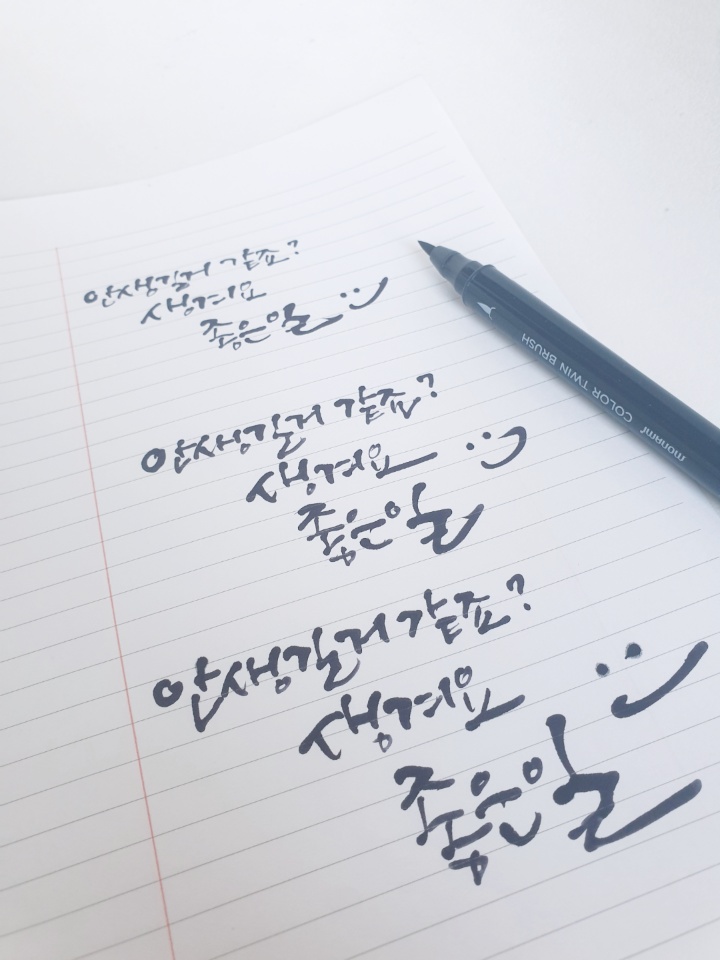 안생길거 같죠?
생겨요
좋은일 :)
안생길거 같죠?
생겨요 :)
좋은일
안생길거 같죠?
생겨요 :)
좋은일
monami COLOR TWIN BRUSH